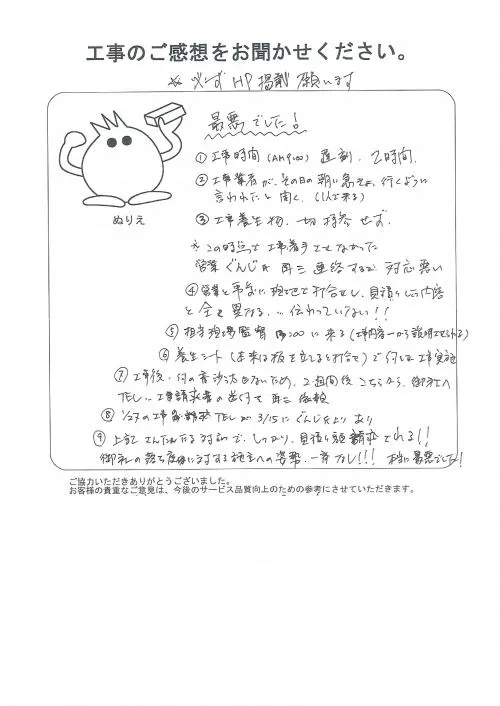 工事のご感想をお聞かせください。
※ 必ず HP 掲載 願います
最悪でした!
① 工事時間 (AM9:00) 遅刻. 2時間.
② 工事業者が、その日の朝に急きょ、行くように
言われたと聞く. (1人で来る)
③ 工事養生物. 一切 持参せず.
※ この時点で 工事着手させなかった
営業 ぐんじ氏 再三 連絡するが 対応悪い
④ 営業と事前に現地で打合せし、見積りした内容
と全く異なる. 伝わっていない!!
⑤ 担当現場監督 に来る (工事内容一から説明させられる)
⑥ 養生シート (本来は板を立てると打合せ) で何とか工事実施
⑦ 工事後. 何の音沙汰もないため、2週間後こちらから、御社へ
TEL 工事請求書の送付を再三依頼
⑧ 1/27の工事 TELが 3/15にぐんじ氏より あり
⑨ 上記さんたんたる対応で、しっかり、見積り額請求される!!
御社の に対する施主への姿勢. 一斉なし!!! 本当に最悪でした!
ぬりえ
ご協力いただきありがとうございました。
お客様の貴重なご意見は、今後のサービス品質向上のための参考にさせていただきます。